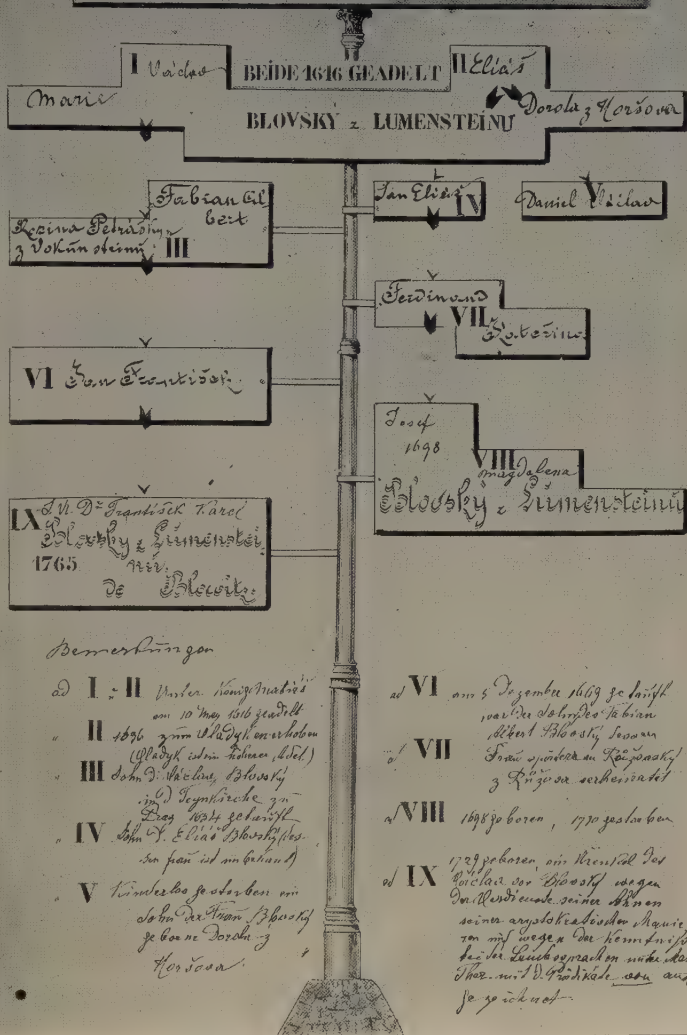 I Václav
BEIDE 1616 GEADELT
II Eliáš
Marie
Dorota z Horšova
BLOVSKÝ z LUMENSTEINU
Fabian Al
bert
Rozina Petráský
z Vokúnsteinu
III
Jan Eliáš IV
Daniel Václav V
Ferdinand
VII Kateřina
VI Jan František
Josef
1698
VIII magdalena
Blovský z Lumensteinu
IX Dr František Karel
Blovský z Lumenstei
nu
1765
de Blowitz
Bemerkungen
ad I u II Unter König Matiáš
am 10 May 1616 geadelt
" II 1696 zum Vladyken erhoben
(Vladyk ist ein höherer Adel.)
" III Sohn d. Václav Blovský
in d Teynkirche zu
Prag 1634 getauft
" IV Sohn d. Eliáš Blovský (des-
sen frau ist unbekannt)
" V Kinderlos gestorben ein
Sohn der Frau Blovský
geborene Dorota z
Horšova.
ad VI am 5 Dezember 1669 getauft
war der Sohn des Fabian
Albert Blovský
ad VII Frau später an
z Růžova verheiratet
ad VIII 1698 geboren, gestorben
ad IX 1729 geboren, ein Urenkel des
Václav von Blovský wegen
der Verdienste seiner Ahnen
seiner arystokratischen Manie-
ren und wegen der Kenntniss
der Landessprachen
Ther. mit d. Prädikate von aus
gezeichnet.